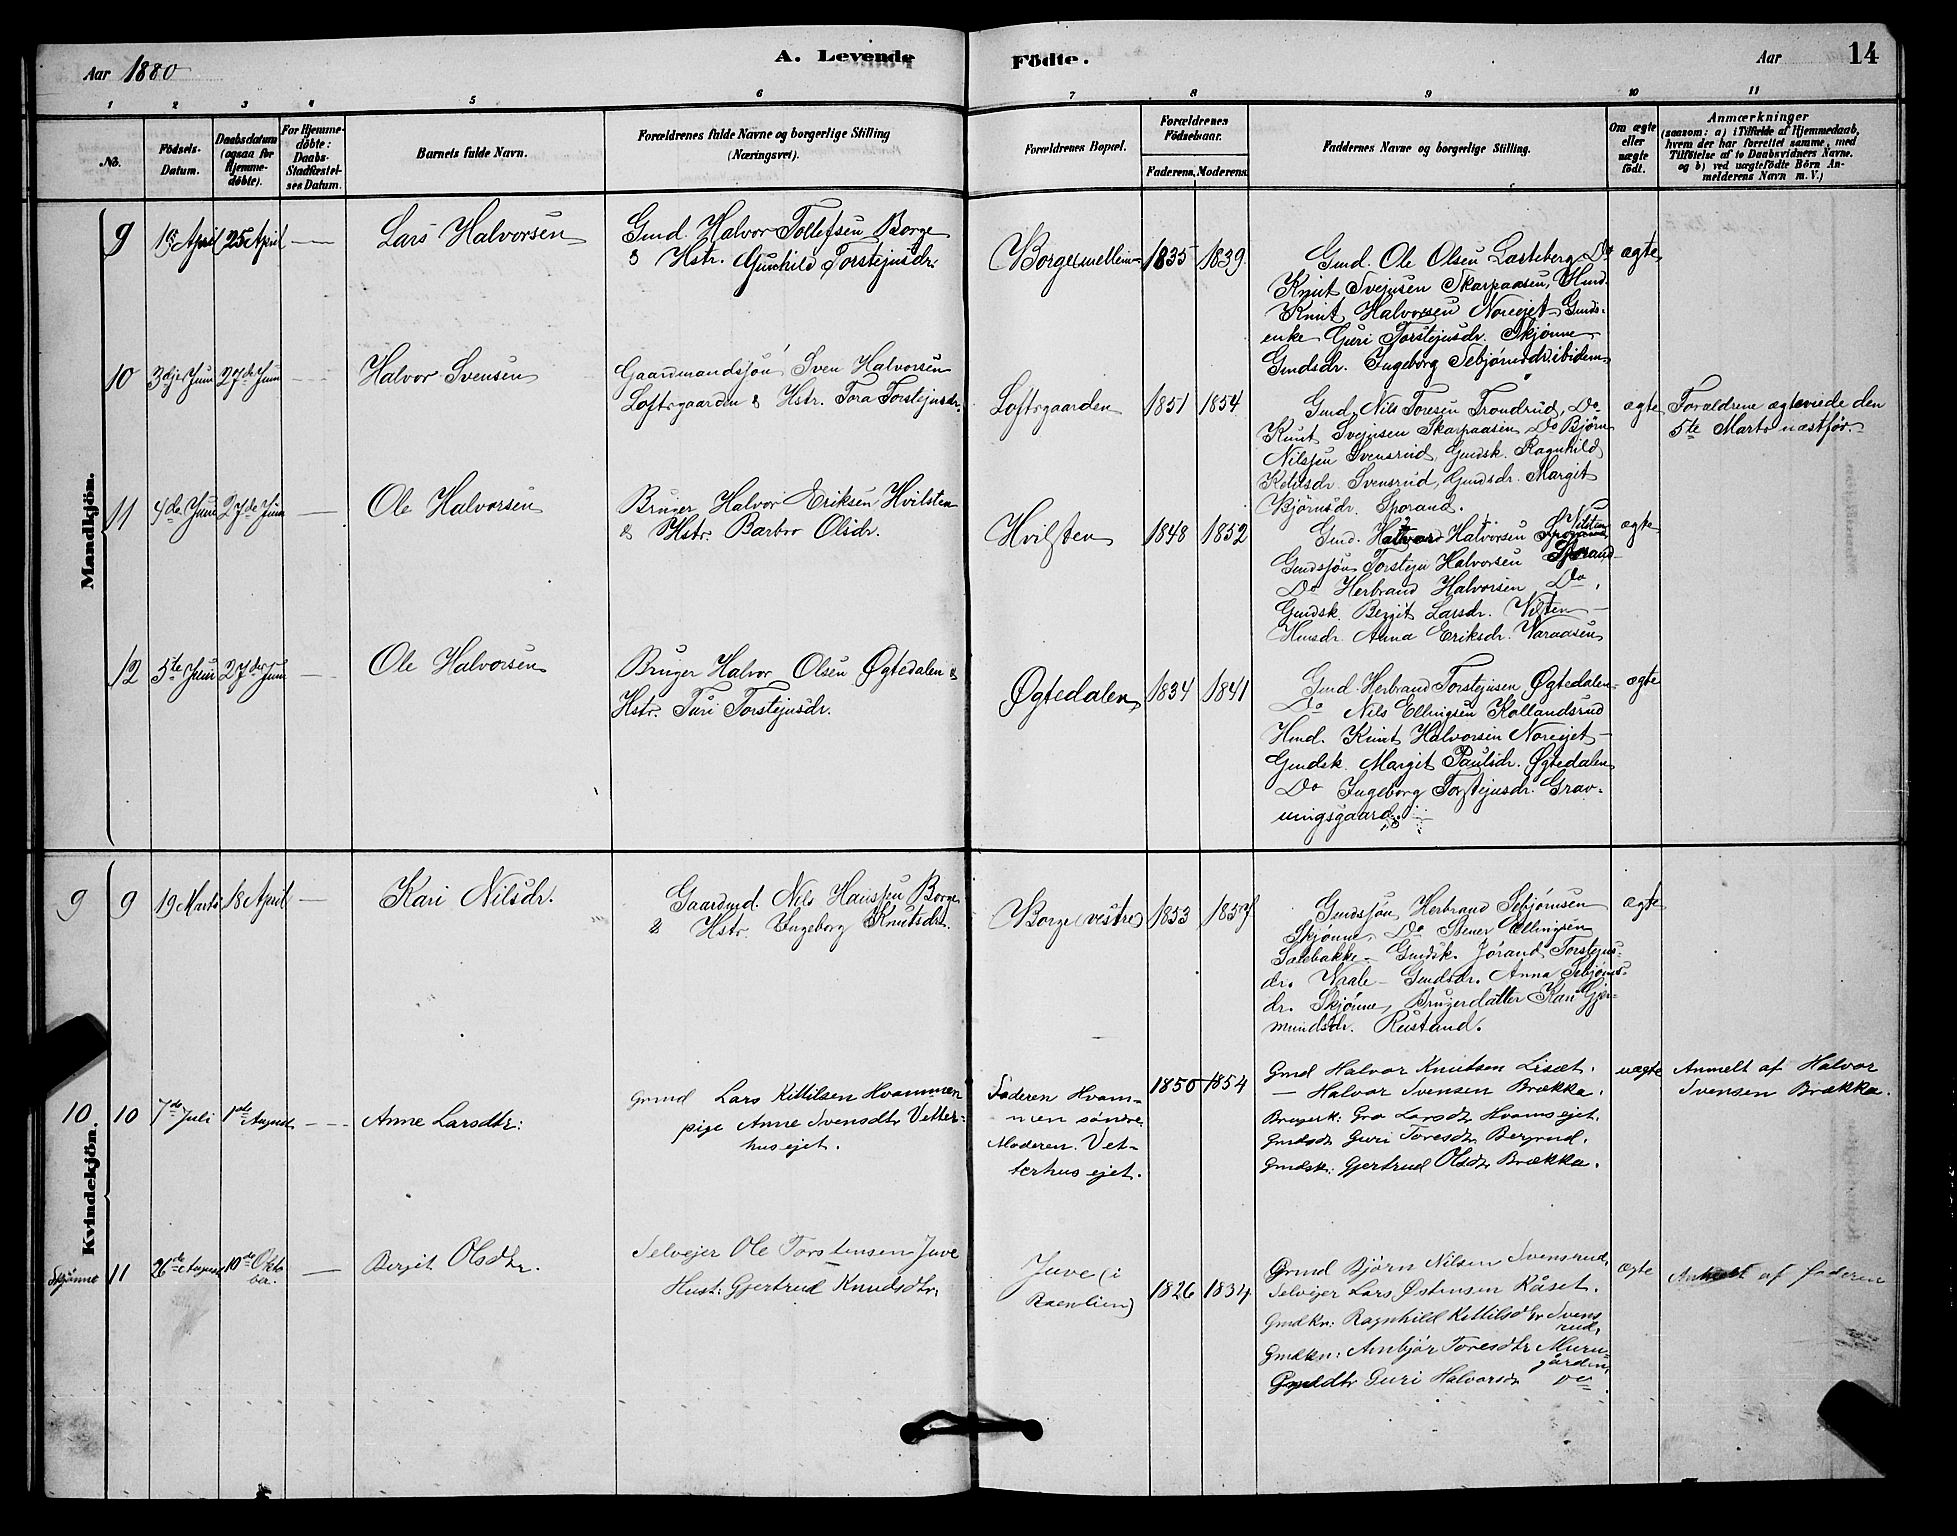 Aar 1880
A. Levende
Födte.
Aar
14
1 2 3 4 5 6 7 8 9 10 11
No.
Födsels-
Datum.
Daabsdatum
(ogsaa for
Hjemme-
döbte).
For Hjemme-
döbte:
Daabs-
Stadfæstel-
ses Datum.
Barnets fulde Navn.
Forældrenes fulde Navne og borgerlige Stilling
(Næringsvei).
Forældrenes Bopæl.
Forældrenes
Födselsaar.
Faderens. Moderens.
Faddernes Navne og borgerlige Stilling.
Om ægte
eller
uægte
födt.
Anmærkninger
(saasom: a) i Tilfælde af Hjemmedaab,
hvem der har forrettet samme, med
Tilföielse af to Daabsvidners Navne.
og b) ved uægtefödte Börn An-
melderens Navn m. V.)
Mandkjön.
9
April 25 April
Lars Halvorsen
Gmd. Halvor Tollefsen Borge
& Hstr. Gunhild Torstejnsdr.
Borge (mellem
1835 1839
Gmd. Ole Olsen Do
Knut Svejnsen Skarpaasen, Hmd.
Knut Halvorsen Norejet Gmds-
enke Guri Torstejnsdr. Skjønne
Gmdsdr. Ingeborg Sebjørnsdr. ibidem
ægte
10
3dje Juni 27de Juni
Halvor Svensen
Gaardmandssøn Sven Halvorsen
Loftsgaarden & Hstr. Tora Torstejnsdr.
Loftsgaarden
1851 1854
Gmd. Nils Toresen Trondrud, Do
Knut Svejnsen Skarpaasen Do Bjørn
Nilssen Svensrud, Gmdsk. Ragnhild
Ketilsdr. Svensrud, Gmdsdr. Margit
Bjørnsdr. Sporand.
ægte
Forældrene ægteviede den
5te Marts næstfør.
11
4de Juni 27de Juni
Ole Halvorsen
Bruger Halvor Eriksen Hvilsten
& Hstr. Barbro Olsdr.
Hvilsten
1848 1852
Gmd. Halvor Halvorsen Vilsten
Gmdssøn Torstejn Halvorsen Sporand
Do Herbrand Halvorsen Do
Gmdsk. Bergit Larsdr. Vilsten
Hmsdr. Anna Eriksdr. Varaasen
ægte
12
5te Juni 27de Juni
Ole Halvorsen
Bruger Halvor Olsen Øgtedalen &
Hstr. Turi Torstejnsdr.
Øgtedalen
1834 1841
Gmd. Herbrand Torstejnsen Øgtedalen
Do Nils Ellingsen Kollandsrud
Hmd. Knut Halvorsen Norejet
Gmdsk. Margit Paulsdr. Øgtedalen
Do Ingeborg Torstejnsdr. Grav-
ningsgaard.
ægte
Kvindekjön.
9 9
19 Marts 18 April
Kari Nilsdr.
Gaardmd. Nils Hanssen Borge
& Hstr. Ingeborg Knutsdr.
Borge (vestre)
1853 1857
Gmdssøn Herbrand Sebjørnsen
Skjønne, Do Stener Ellingsen
Gmdsk. Jørand Torstejns-
dr. Vaale - Gmdsdr. Anna Sebjørns-
dr. Skjønne, Brugerdatter Kari Gjer-
mundsdr. Rustand.
ægte
10 10
7de Juli 1ste August
Anne Larsdtr:
Gmd Lars Kittilsen Hvammen
pige Anne Svensdtr Vetter-
husejet.
Faderen Hvam-
men søndre
Moderen. Vet-
terhusejet.
1850 1854
Gmd Halvor Knutsen Liset.
— Halvor Svensen Brækka.
Brugerk: Gro Larsdtr Hvamsejet.
Gmdsdtr Guri Toresdtr Bergrud.
Gmdsk: Gjertrud Olsdtr Brækka.
uægte
Anmelt af Halvor
Svensen Brækka.
Skjønne 11
26de August 10de Okto
ber.
Bergit Olsdtr.
Selvejer Ole Torstensen Juve
Hust: Gjertrud Knudsdtr.
Juve (i
1826 1834
Gmd Bjørn Nilsen Svensrud,
Selvejer Lars Østensen Råset.
Gmdkn: Ragnhild Kittilsdtr Svens
rud,
Gmdkn: Anbjør Toresdtr Muru-
gården
Gmddtr Guri Halvorsdtr Do
ægte
Anmelt af faderen